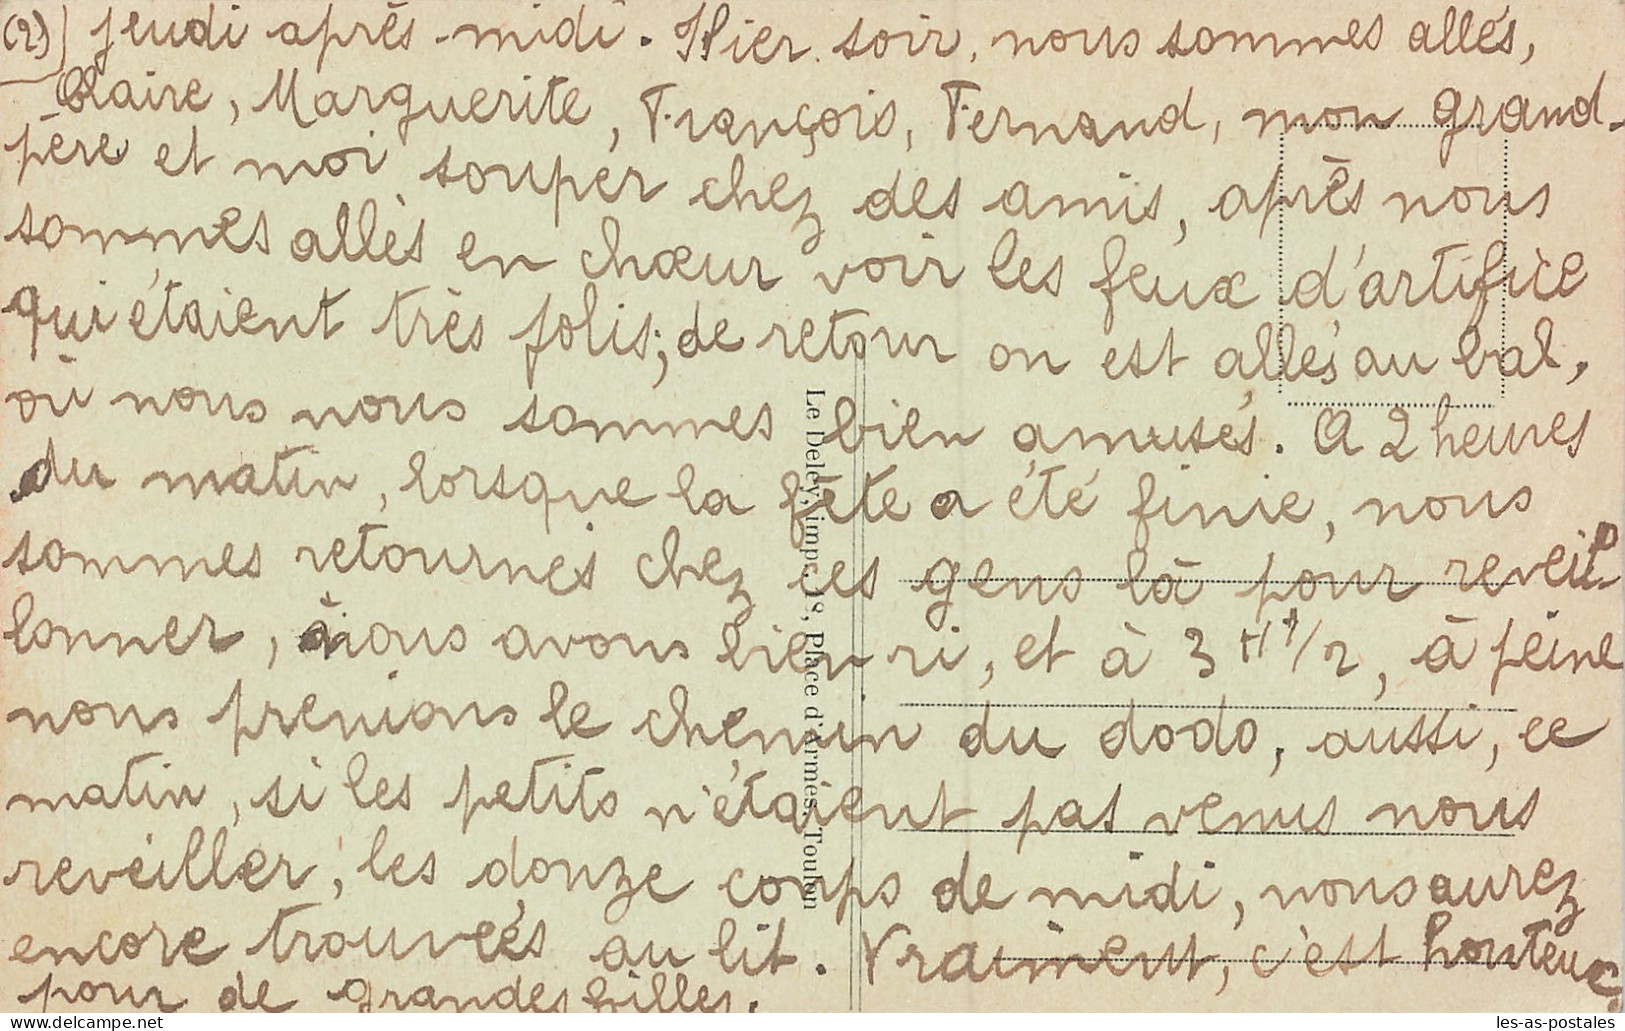 (2) jeudi après-midi. Hier soir, nous sommes allés,
Claire, Marguerite, François, Fernand, mon grand-
père et moi souper chez des amis, après nous
sommes allés en chœur voir les feux d'artifice
qui étaient très jolis; de retour on est allés au bal,
où nous nous sommes bien amusés. A 2 heures
du matin, lorsque la fête a été finie, nous
sommes retournés chez ces gens là pour reveil-
lonner, nous avons bien ri, et à 3 H 1/2, à peine
nous prenions le chemin du dodo, aussi, ce
matin, si les petits n'étaient pas venus nous
reveiller, les douze coups de midi, nous aurez
encore trouvées au lit. Vraiment, c'est honteux
pour de grandes filles.
Le Deley, imp., 1, Place d'Armes, Toulon
les-as-postales.com